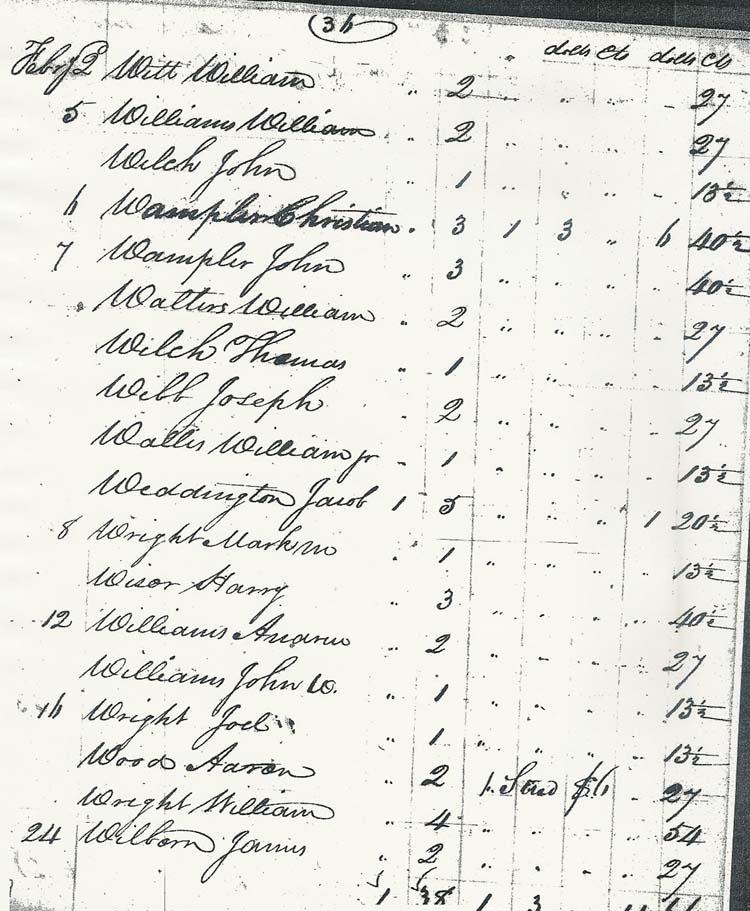 36
dolls Cts dolls Cts
Feby 2 Witt William " 2 " " " 27
5 Williams William " 2 " " " 27
Welch John " 1 " " " 13½
6 Wampler Christian " 3 1 3 " 6 40½
7 Wampler John " 3 40½
Watters William " 2 " " " 27
Welch Thomas " 1 " " " 13½
Webb Joseph " 2 " " " 27
Wallis William jr " 1 " " " 13½
Weddington Jacob 1 5 " " " 1 20½
8 Wright Mark m " 1 " " " 13½
Wisor Harry " 3 " " " 40½
12 Williams Andrew " 2 " " " 27
Williams John W. " 1 " " " 13½
16 Wright Joel " 1 " " " 13½
Wood Aaron " 2 1 Stud $6 " 27
Wright William " 4 " 54
24 Wilborn James " 2 " " " 27
1 38 1 3